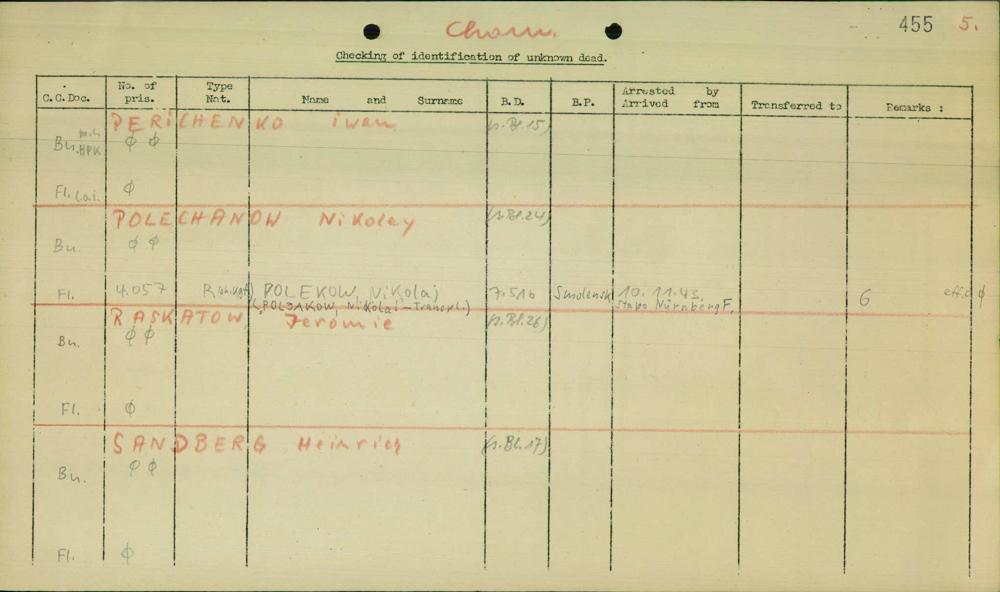 Cham. 455 5.
Checking of identification of unknown dead.
C.C.Doc. No. of pris. Type Nat. Name and Surname B.D. B.P. Arrested by Arrived from Transferred to Remarks :
PERICHENKO iwan (s.Bl.15)
Bu. HPK ϕ ϕ
Fl. ϕ
POLECHANOW Nikolay (s.Bl.24)
Bu. ϕ ϕ
Fl. 4.057 POLEKOW, Nikolai 7.516 Smolensk 10.11.43. 6 ϕ
(POLJAKOW, Nikolai - Transpl.) Stapo Nürnberg F.
RASKATOW Jeromie (s.Bl.26)
Bu. ϕ ϕ
Fl. ϕ
SANDBERG Heinrich (s.Bl.17)
Bu. ϕ ϕ
Fl. ϕ